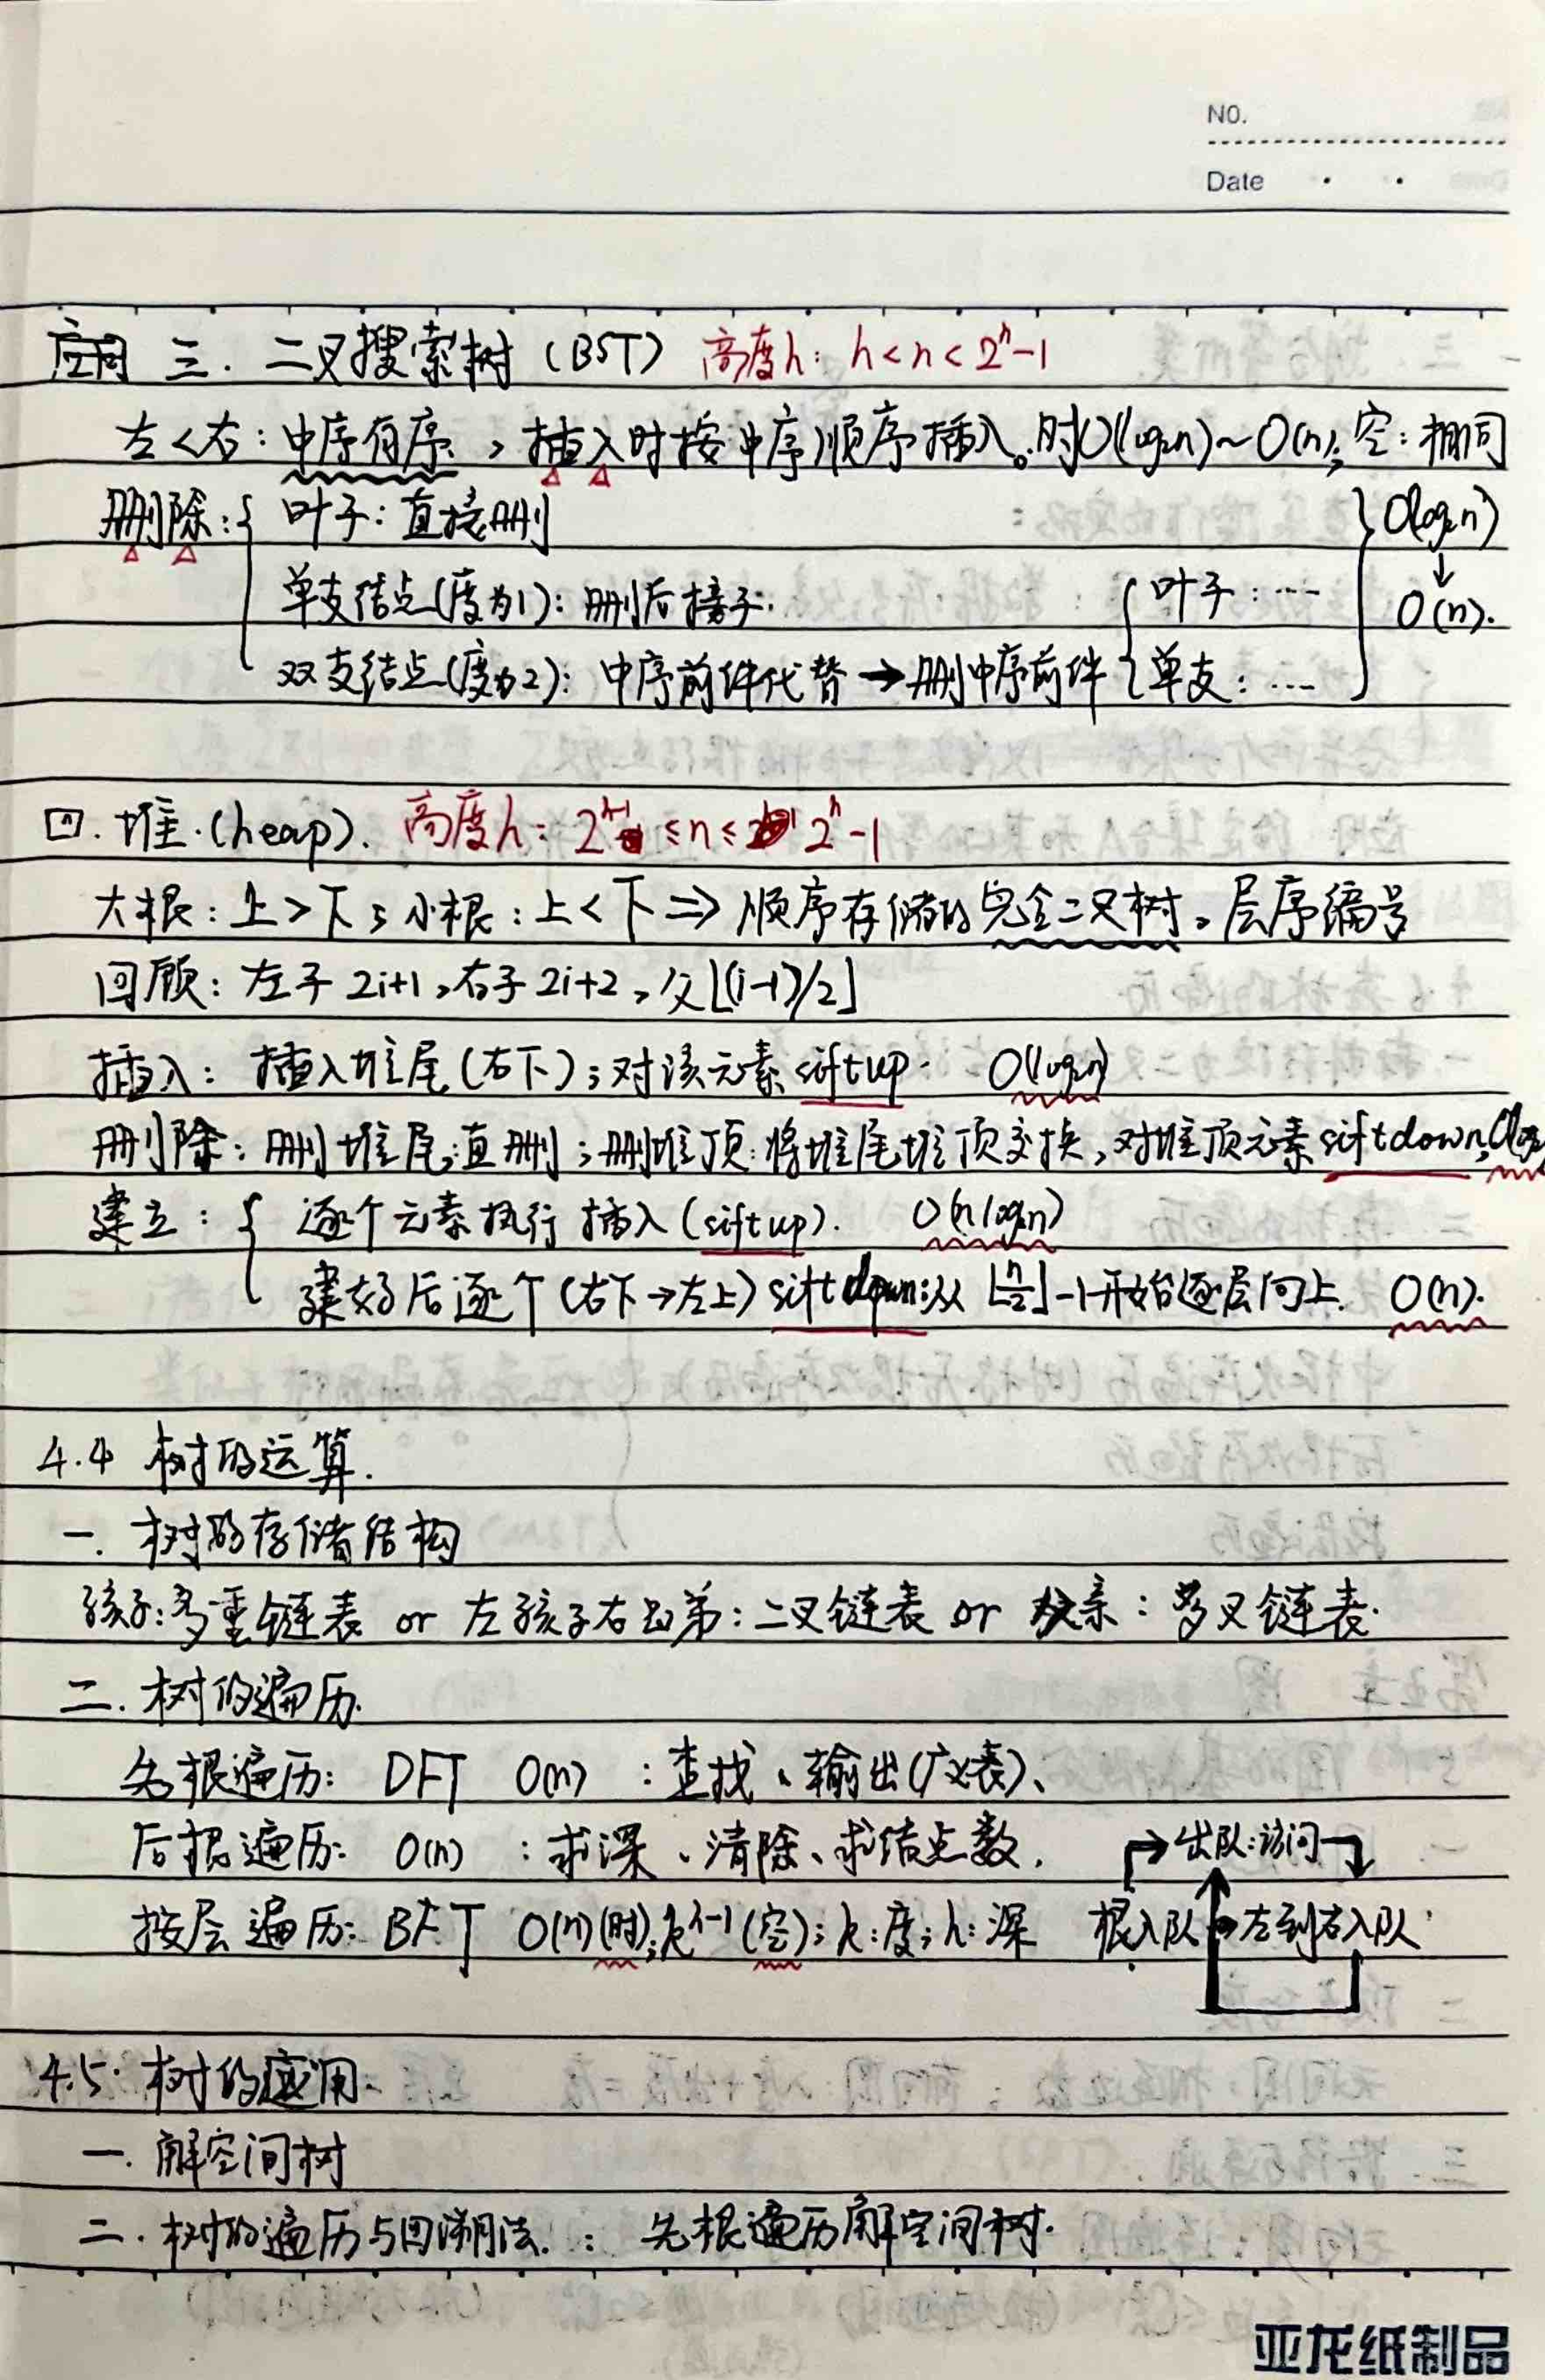 NO.
Date
应用 三. 二叉搜索树 (BST) 高度h: h<n<2^h-1
左<右: 中序有序, 插入时按中序顺序插入。时O(log₂n)~O(n); 空: 相同
删除:{ 叶子: 直接删 } O(log₂n)
单支结点(度为1): 删后接子. { 叶子: ... ↓ O(n).
双支结点(度为2): 中序前件代替→删中序前件 { 单支: ...
四. 堆.(heap). 高度h: 2^h-1 ≤n≤ 2^h-1
大根: 上>下; 小根: 上<下 => 顺序存储的完全二叉树。层序编号
回顾: 左子 2i+1, 右子 2i+2, 父⌊(i-1)/2⌋
插入: 插入堆尾(右下); 对该元素siftup. O(log₂n)
删除: 删堆尾:直删; 删堆顶:将堆尾堆顶交换, 对堆顶元素siftdown,
建立: { 逐个元素执行插入(siftup). O(nlog₂n)
建好后逐个(右下→左上)siftdown:从⌊n/2⌋-1开始逐层向上. O(n).
4.4 树的运算.
一. 树的存储结构
孩子:多重链表 or 左孩子右兄弟: 二叉链表 or 双亲: 多叉链表.
二. 树的遍历.
先根遍历: DFT O(n) : 查找、输出(广义表)、
后根遍历: O(n) : 求深、清除、求结点数. → 出队:访问
按层遍历: BFT O(n)(时); k^h-1(空); k:度; h:深 根入队 → 左到右入队
4.5. 树的应用
一. 解空间树
二. 树的遍历与回溯法. : 先根遍历解空间树.
亚龙纸制品